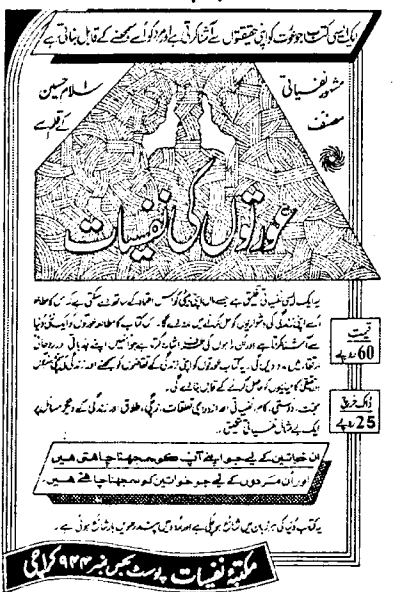 ایک ایسی کتاب جو عورت کو اپنی حقیقتوں سے آشنا کرتی ہے اور مرد کو اُسے سمجھنے کے قابل بناتی ہے
مشہور نفسیاتی
مصنف
سلام حسین
کے قلم سے
عورتوں کی نفسیات
یہ ایک ایسی نفسیاتی تحقیق ہے جسے ماں اپنی بیٹی کو اس اعتماد کے ساتھ دے سکتی ہے کہ اس کا مطالعہ
اُسے اپنی زندگی کی دشواریوں کو حل کرنے میں مدد دے گا۔ اس کتاب کا مطالعہ عورتوں کو ایک نئی دُنیا
سے آشنا کرتا ہے اور ایسی راہوں کی طرف اشارہ کرتا ہے جو انہیں اپنے جذباتی اور روحانی
ارتقاء میں مدد دیں گی۔ یہ کتاب عورتوں کو اپنی زندگی کے تقاضوں کو سمجھنے اور زندگی کی
حقیقی کامیابیوں کو حاصل کرنے کے قابل بنائے گی۔
محبت، دوستی، کامرانی، ازدواجی تعلقات، زچگی، طلاق اور زندگی کے دیگر مسائل پر
ایک بے مثال نفسیاتی تحقیق۔
قیمت
60 روپے
ڈاک خرچ
25 روپے
ان خواتین کے لیے جو اپنے آپ کو سمجھنا چاہتی ہیں
اور اُن مردوں کے لیے جو خواتین کو سمجھنا چاہتے ہیں
یہ کتاب دُنیا کی ہر زبان میں شائع ہو چکی ہے اور اُردو میں پندرھویں بار شائع ہوئی ہے۔
مکتبۂ نفسیات پوسٹ بکس نمبر ۹۴۴ کراچی